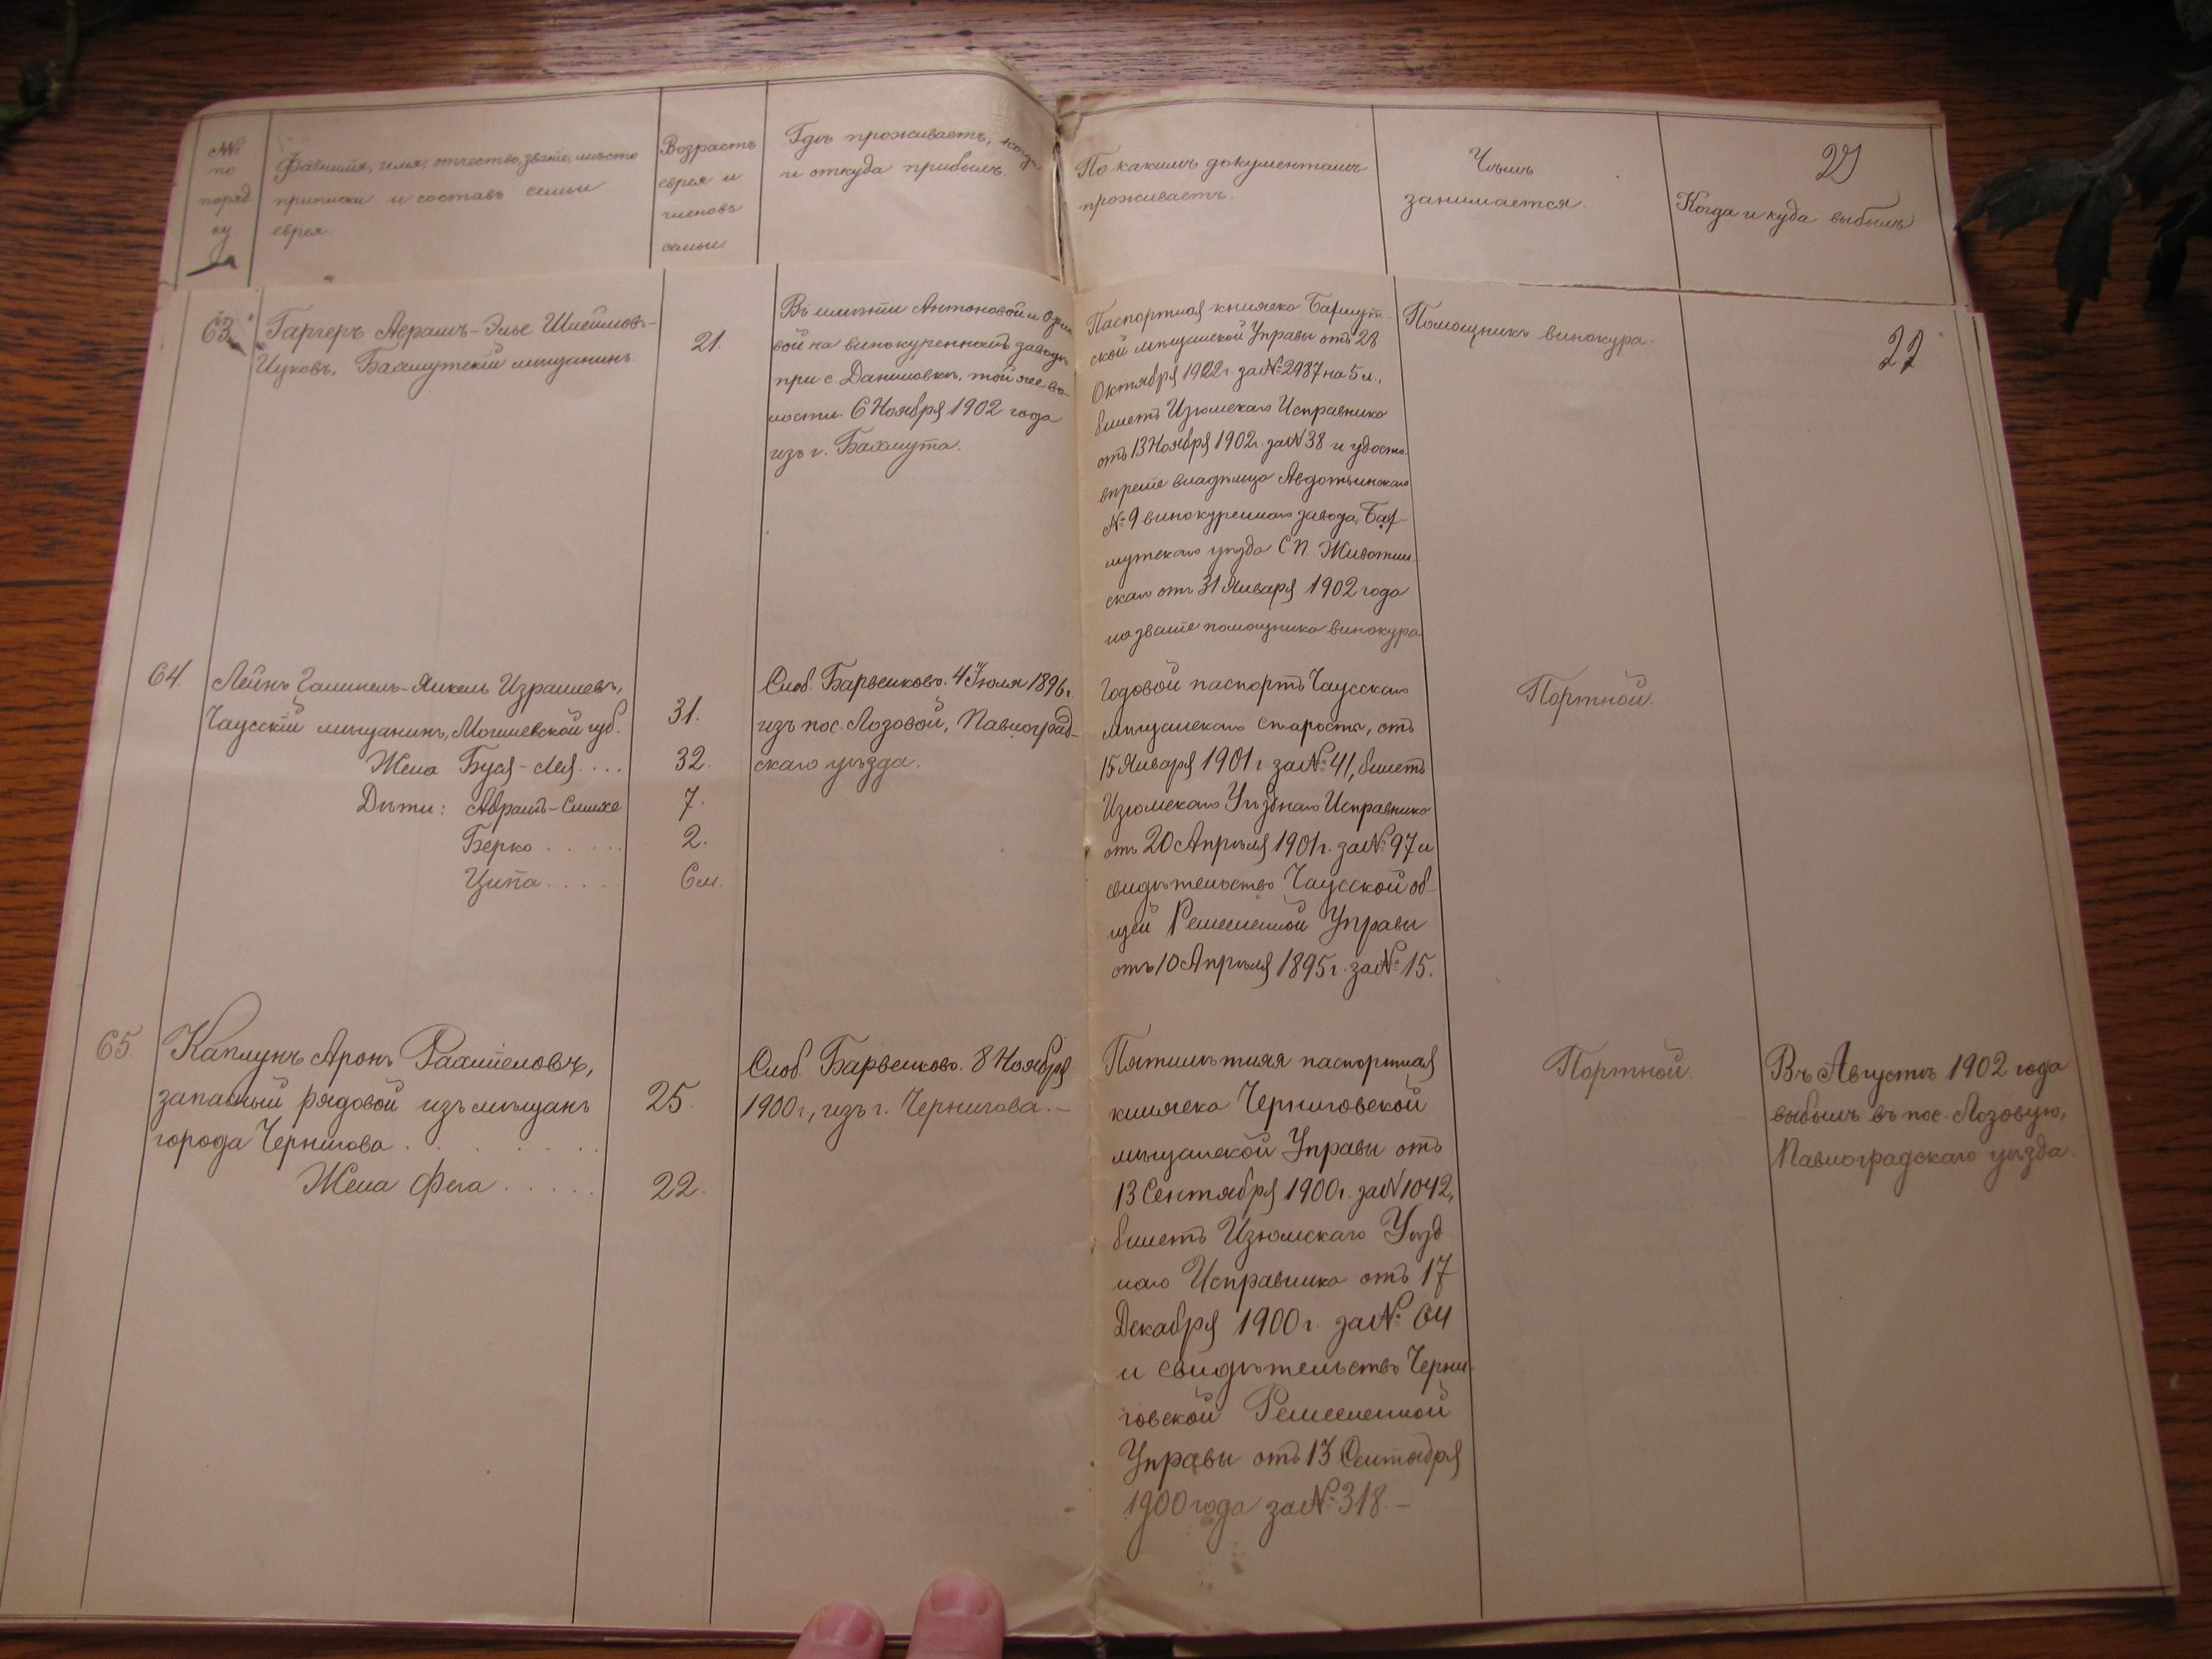 №№
по
поряд
ку
Фамилія, имя, отчество, званіе, мѣсто
приписки и составъ семьи
еврея.
Возрастъ
еврея и
членовъ
семьи
Гдѣ проживаетъ, когда
и откуда прибылъ.
По какимъ документамъ
проживаетъ.
Чѣмъ
занимается.
Когда и куда выбылъ
63.
Гаргеръ Абрамъ-Элье Шлеймовъ-
Ицковъ, Бахмутскій мѣщанинъ.
21.
Въ имѣніи Антоновой и
вой на винокуренномъ заводѣ
при с. Даниловкѣ, той же во-
лости. 6 Ноября 1902 года
изъ г. Бахмута.
Паспортная книжка Бахмут-
ской мѣщанской Управы отъ 28
Октября 1902 г. за № 2987 на 5 л.,
билетъ Изюмскаго Исправника
отъ 13 Ноября 1902 г. за № 38 и удосто-
вѣреніе владѣльца Авдотьинскаго
№ 9 винокуреннаго завода, Бах-
мутскаго уѣзда С. П.
скаго отъ 31 Января 1902 года
на званіе помощника винокура
Помощникъ винокура.
22
64.
Лейнъ Янкель Израилевъ,
Чаусскій мѣщанинъ, Могилевской губ.
31.
Жена Буся-Лея....
32.
Дѣти: Абрамъ-Симхе
7.
Берко.....
2.
Ципа.....
6 м.
Слоб. Барвенкова. 4 Іюля 1896 г.
изъ пос. Лозовой, Павлоград-
скаго уѣзда.
Годовой паспортъ Чаусскаго
мѣщанскаго старосты, отъ
15 Января 1901 г. за № 41, билетъ
Изюмскаго Уѣзднаго Исправника
отъ 20 Апрѣля 1901 г. за № 97 и
свидѣтельство Чаусской об-
щей Ремесленной Управы
отъ 10 Апрѣля 1895 г. за № 15.
Портной.
65.
Каплунъ Аронъ Рахміеловъ,
запасный рядовой изъ мѣщанъ
города Чернигова.......
25.
Жена Фега.....
22.
Слоб. Барвенково. 8 Ноября
1900 г., изъ г. Чернигова.—
Пятилѣтняя паспортная
книжка Черниговской
мѣщанской Управы отъ
13 Сентября 1900 г. за № 1042,
билетъ Изюмскаго Уѣзд-
наго Исправника отъ 17
Декабря 1900 г. за № 64
и свидѣтельство Черни-
говской Ремесленной
Управы отъ 13 Сентября
1900 года за № 318.—
Портной.
Въ Августѣ 1902 года
выбылъ въ пос. Лозовую,
Павлоградскаго уѣзда.